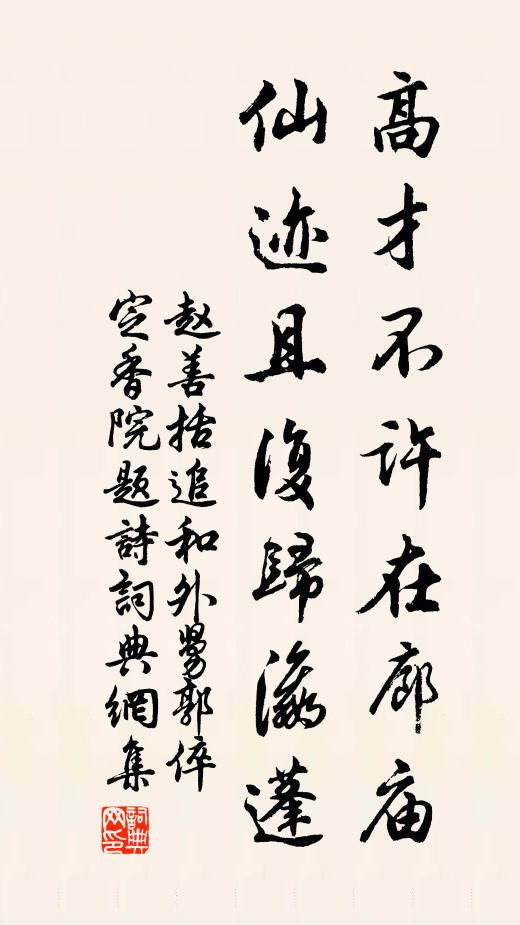 高才不许在廊庙
仙迹且復歸瀛蓬
赵善括追和外舅郭倅
定香院题詩詞典網集
詞典网印